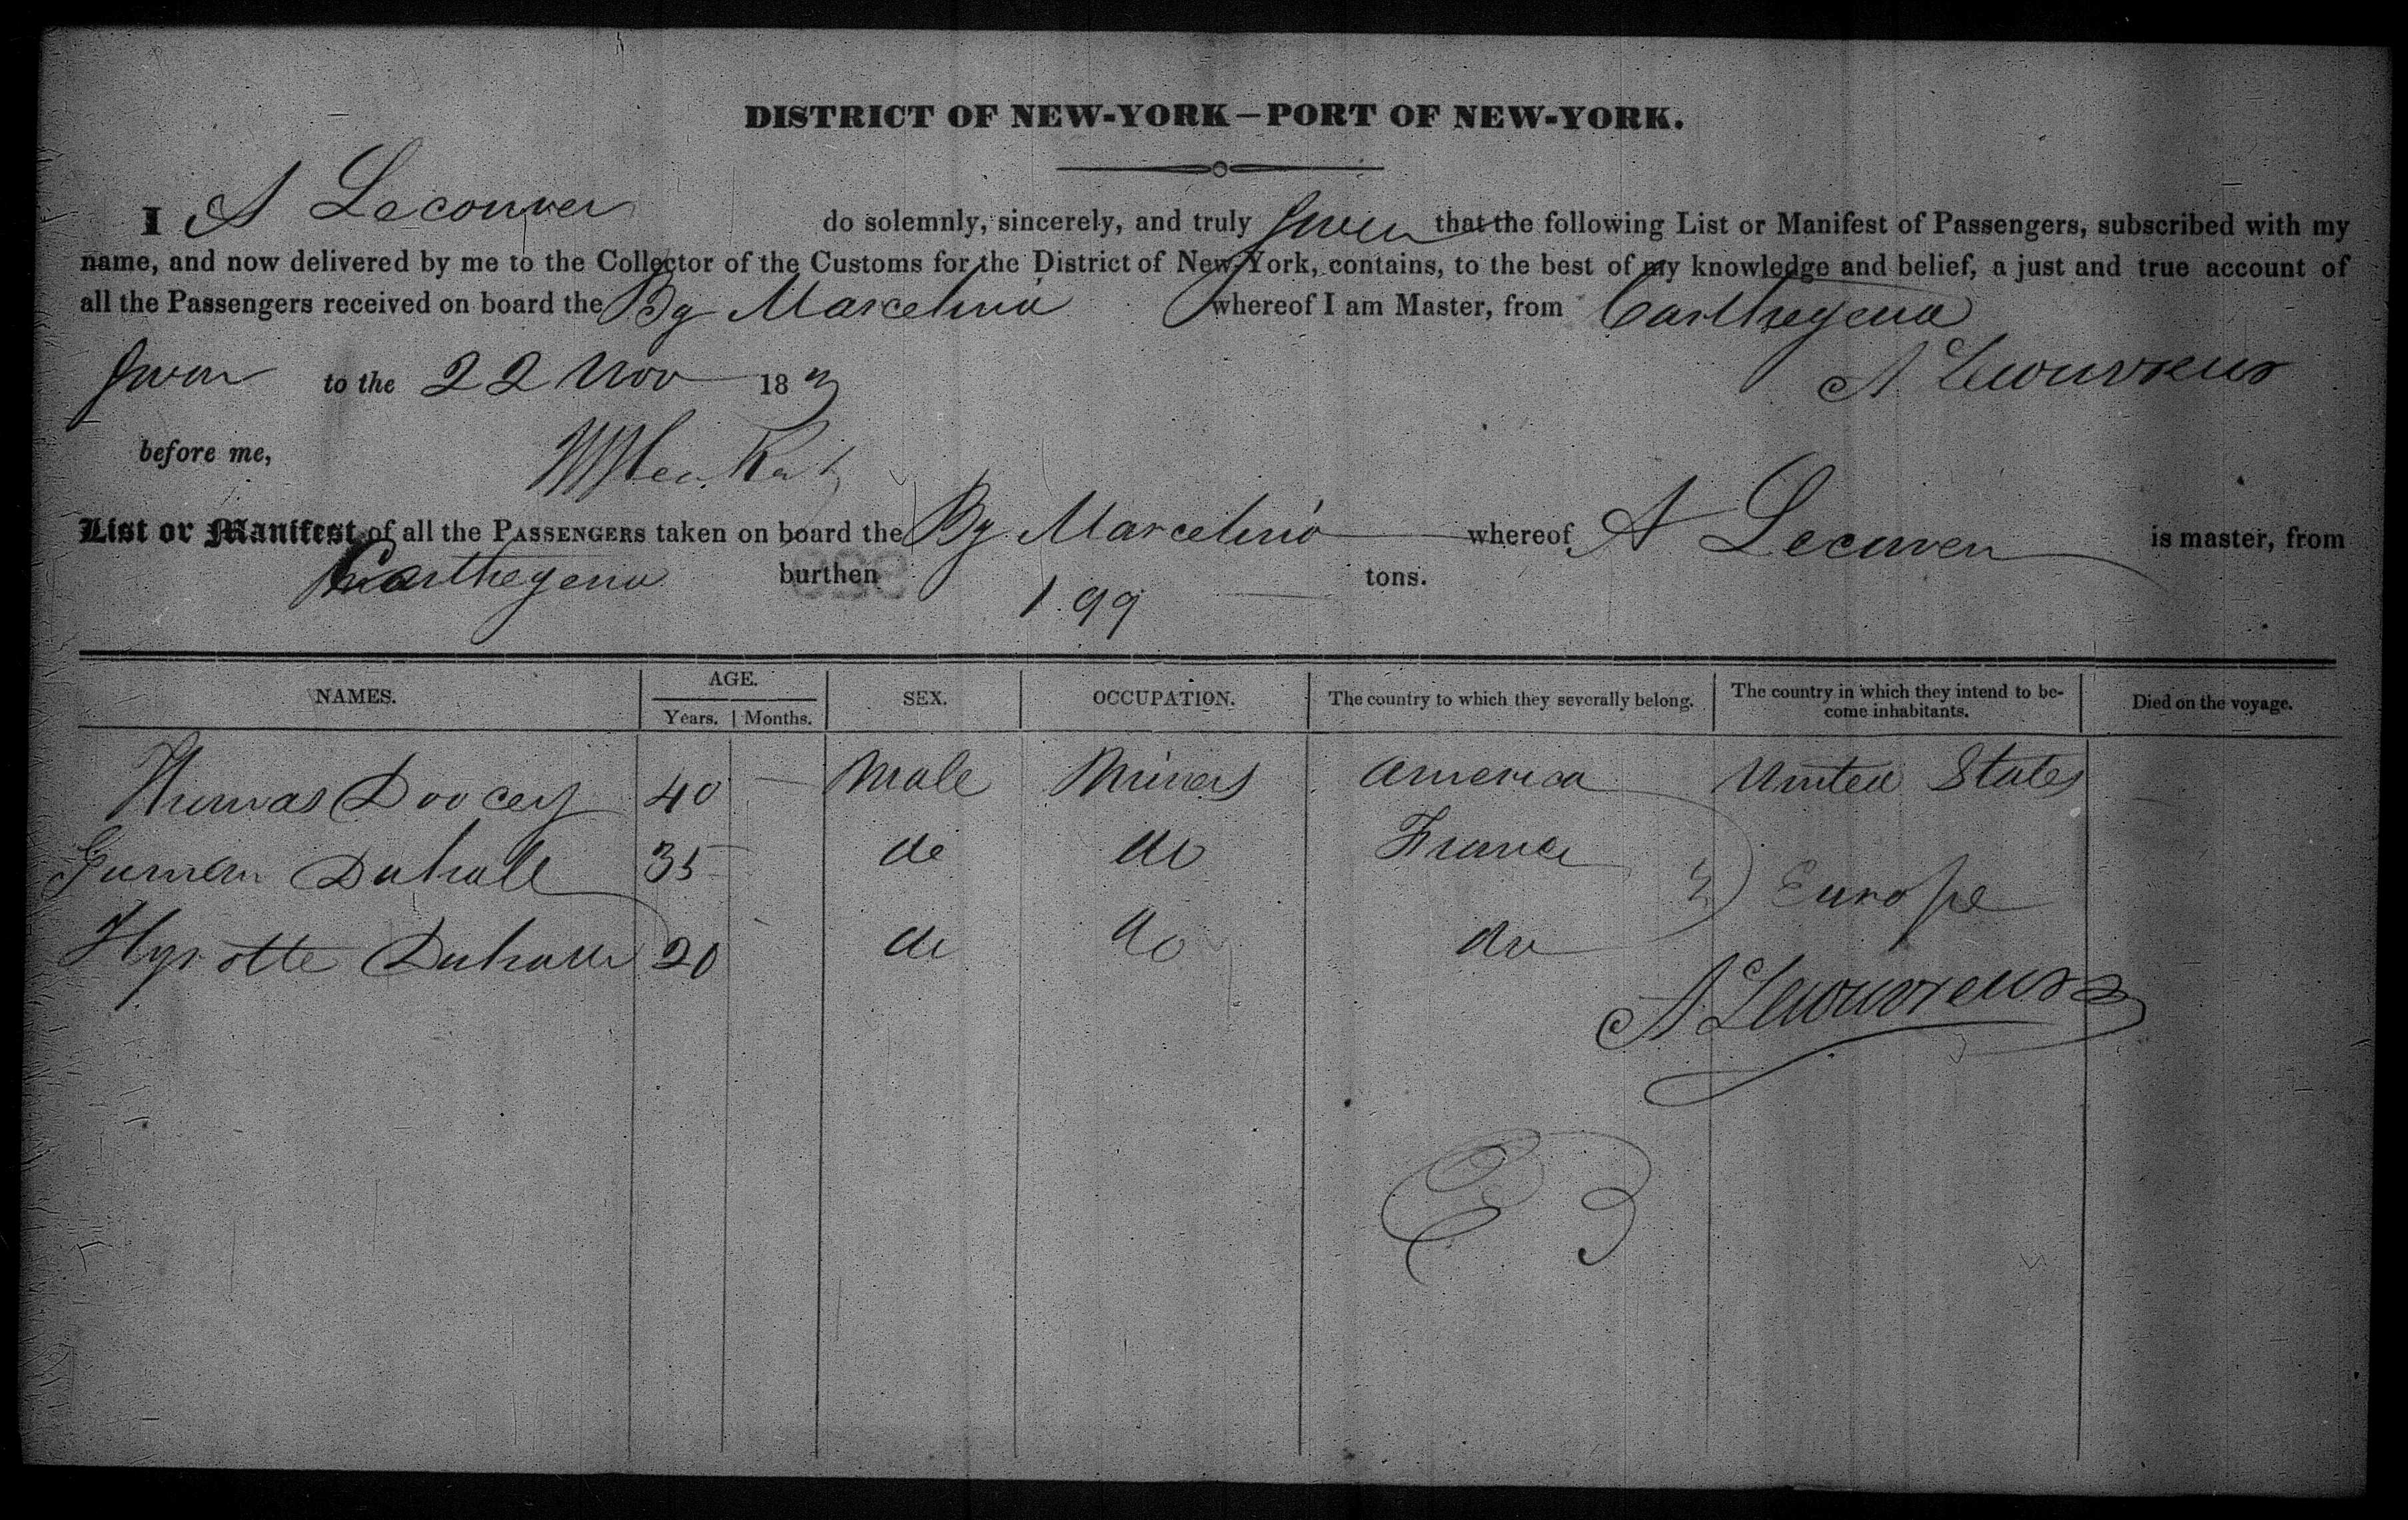 DISTRICT OF NEW-YORK—PORT OF NEW-YORK.
I A Lecouver do solemnly, sincerely, and truly swear that the following List or Manifest of Passengers, subscribed with my
name, and now delivered by me to the Collector of the Customs for the District of New-York, contains, to the best of my knowledge and belief, a just and true account of
all the Passengers received on board the Bg Marcelina whereof I am Master, from Carthegena
Sworn to the 22 Nov 18 A Lecouvreur
before me,
List or Manifest of all the PASSENGERS taken on board the Bg Marcelino whereof A Lecuver is master, from
Carthegena burthen 199 tons.
NAMES. AGE. SEX. OCCUPATION. The country to which they severally belong. The country in which they intend to be- Died on the voyage.
Years. Months. come inhabitants.
Thomas Doocey 40 Male Miners America United States
Duhall 35 do do France Europe
Duhalle 20 do do do
A Lecouvreur
3